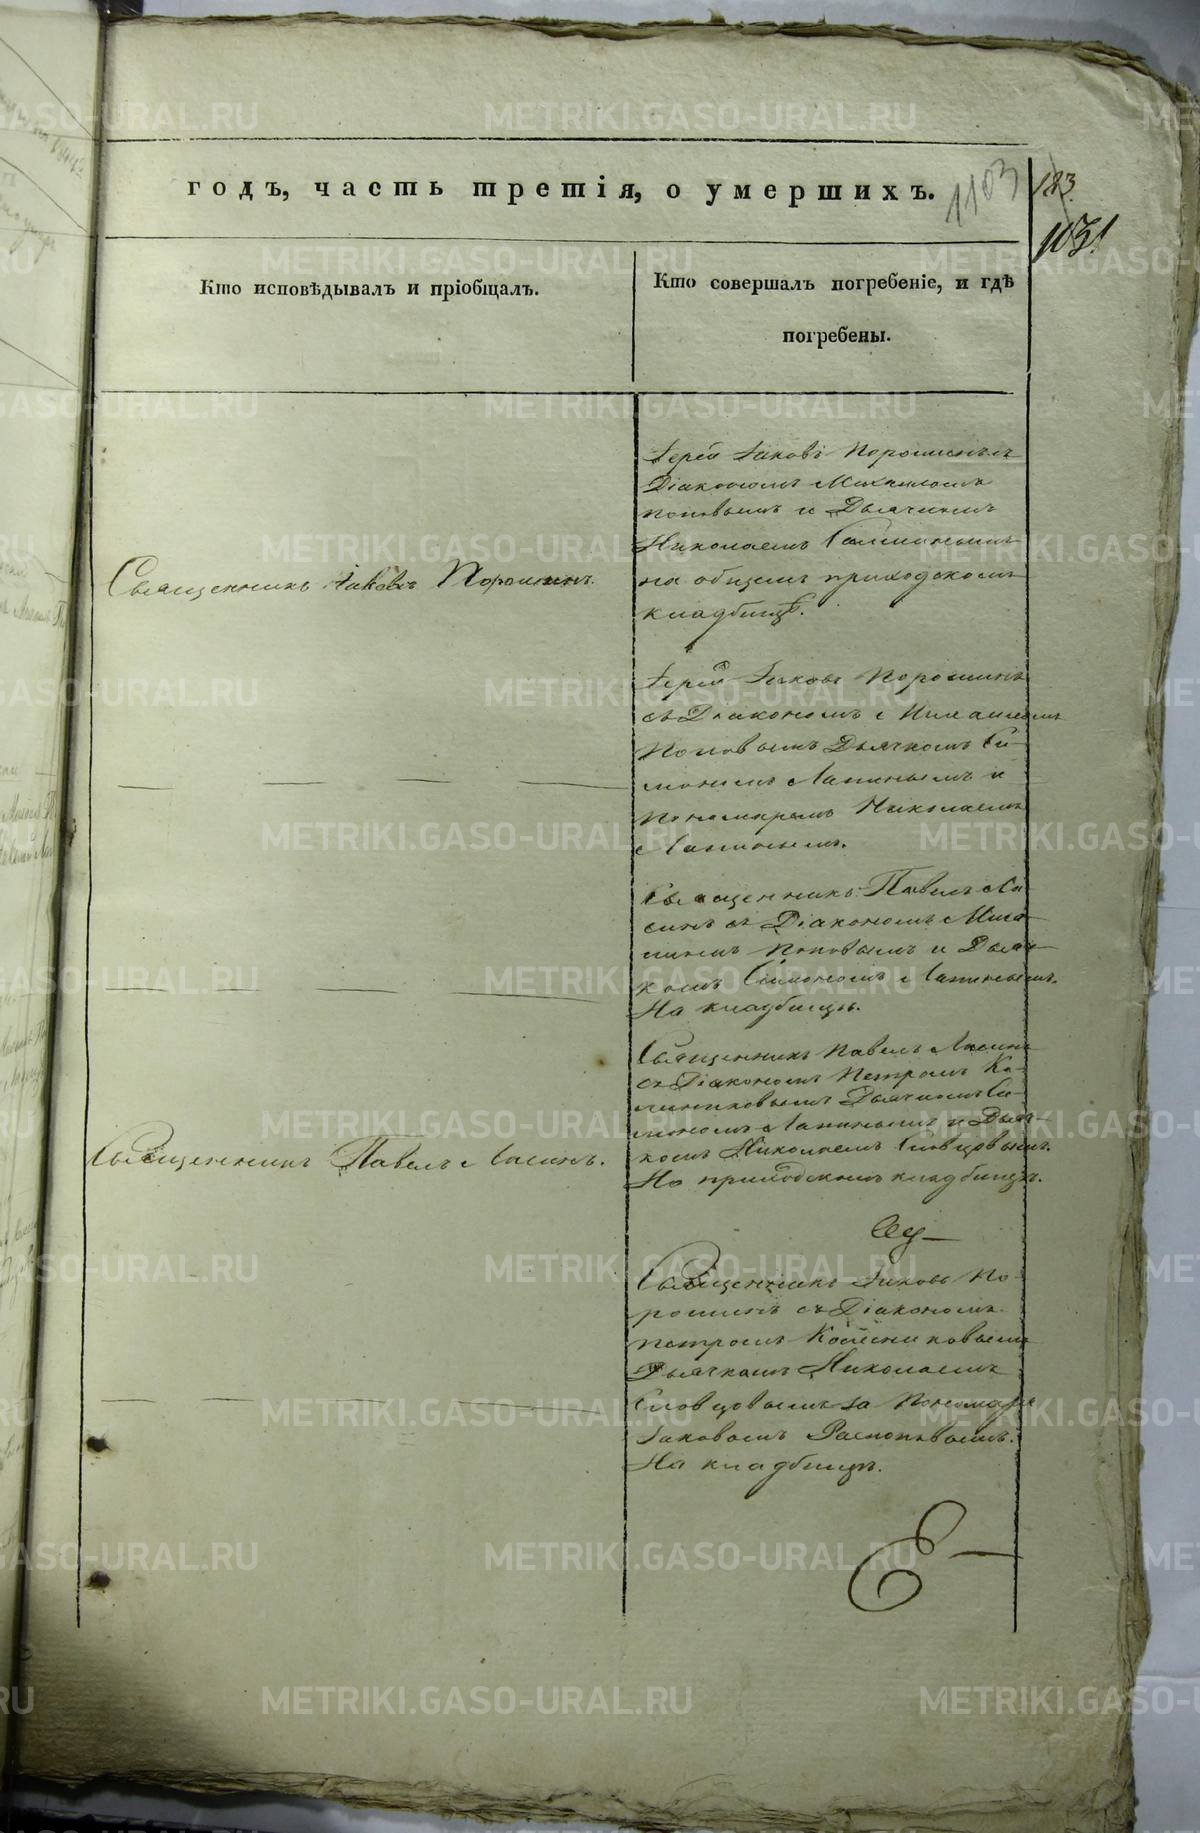 годъ, часть третія, о умершихъ.
1103
183
1031
Кто исповѣдывалъ и пріобщалъ.
Кто совершалъ погребеніе, и гдѣ
погребены.
Священникъ Іаковъ Порошинъ.
Іерей Іаковъ Порошинъ съ
Діакономъ Михаиломъ
Поповымъ и Дьячкомъ
Николаемъ
на общемъ приходскомъ
кладбищѣ.
Іерей Іаковъ Порошинъ
съ Діакономъ Михаиломъ
Поповымъ Дьячкомъ Си-
мономъ Лапинымъ и
Пономаремъ Николаемъ
Священникъ Павелъ Ла-
синъ съ Діакономъ Миха-
иломъ Поповымъ и Дьяч-
комъ Симономъ Лапинымъ.
На кладбищѣ.
Священникъ Павелъ Ласинъ.
Священникъ Павелъ Ласинъ
съ Діакономъ Петромъ Ко-
Дьячкомъ Си-
мономъ Лапинымъ и Дьяч-
комъ Николаемъ Словцовымъ.
На приходскомъ кладбищѣ.
Священникъ Іаковъ По-
рошинъ съ Діакономъ
Петромъ Колесниковымъ
Дьячкомъ Николаемъ
Словцовымъ за Пономаря
Іаковомъ Распоповымъ.
На кладбищѣ.
METRIKI.GASO-URAL.RU